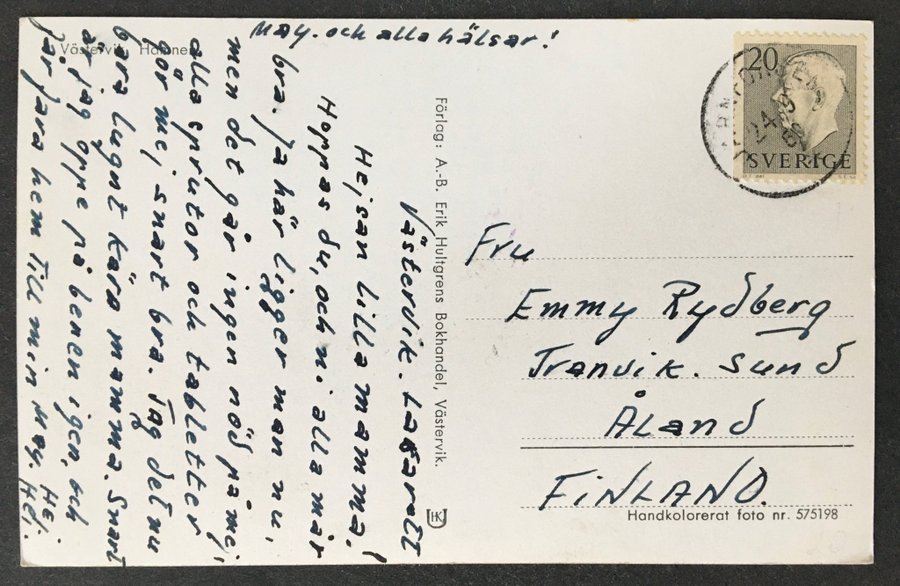 Västervik. Lasarett
Hejsan lilla mamma!
Hoppas du, och ni alla mår
bra. Ja här ligger man nu,
men det går ingen nöd på mej
alla sprutor och tabletter
gör mej snart bra. Tag det nu
bara lugnt kära mamma. Snart
är jag oppe på benen igen, och
får fara hem till min May. Hej
Hej.
May. och alla hälsar!
Västervik. Hamnen
Förlag: A.-B. Erik Hultgrens Bokhandel, Västervik.
20
SVERIGE
Fru
Emmy Rydberg
Tranvik. Sund
Åland
FINLAND.
HK
Handkolorerat foto nr. 575198